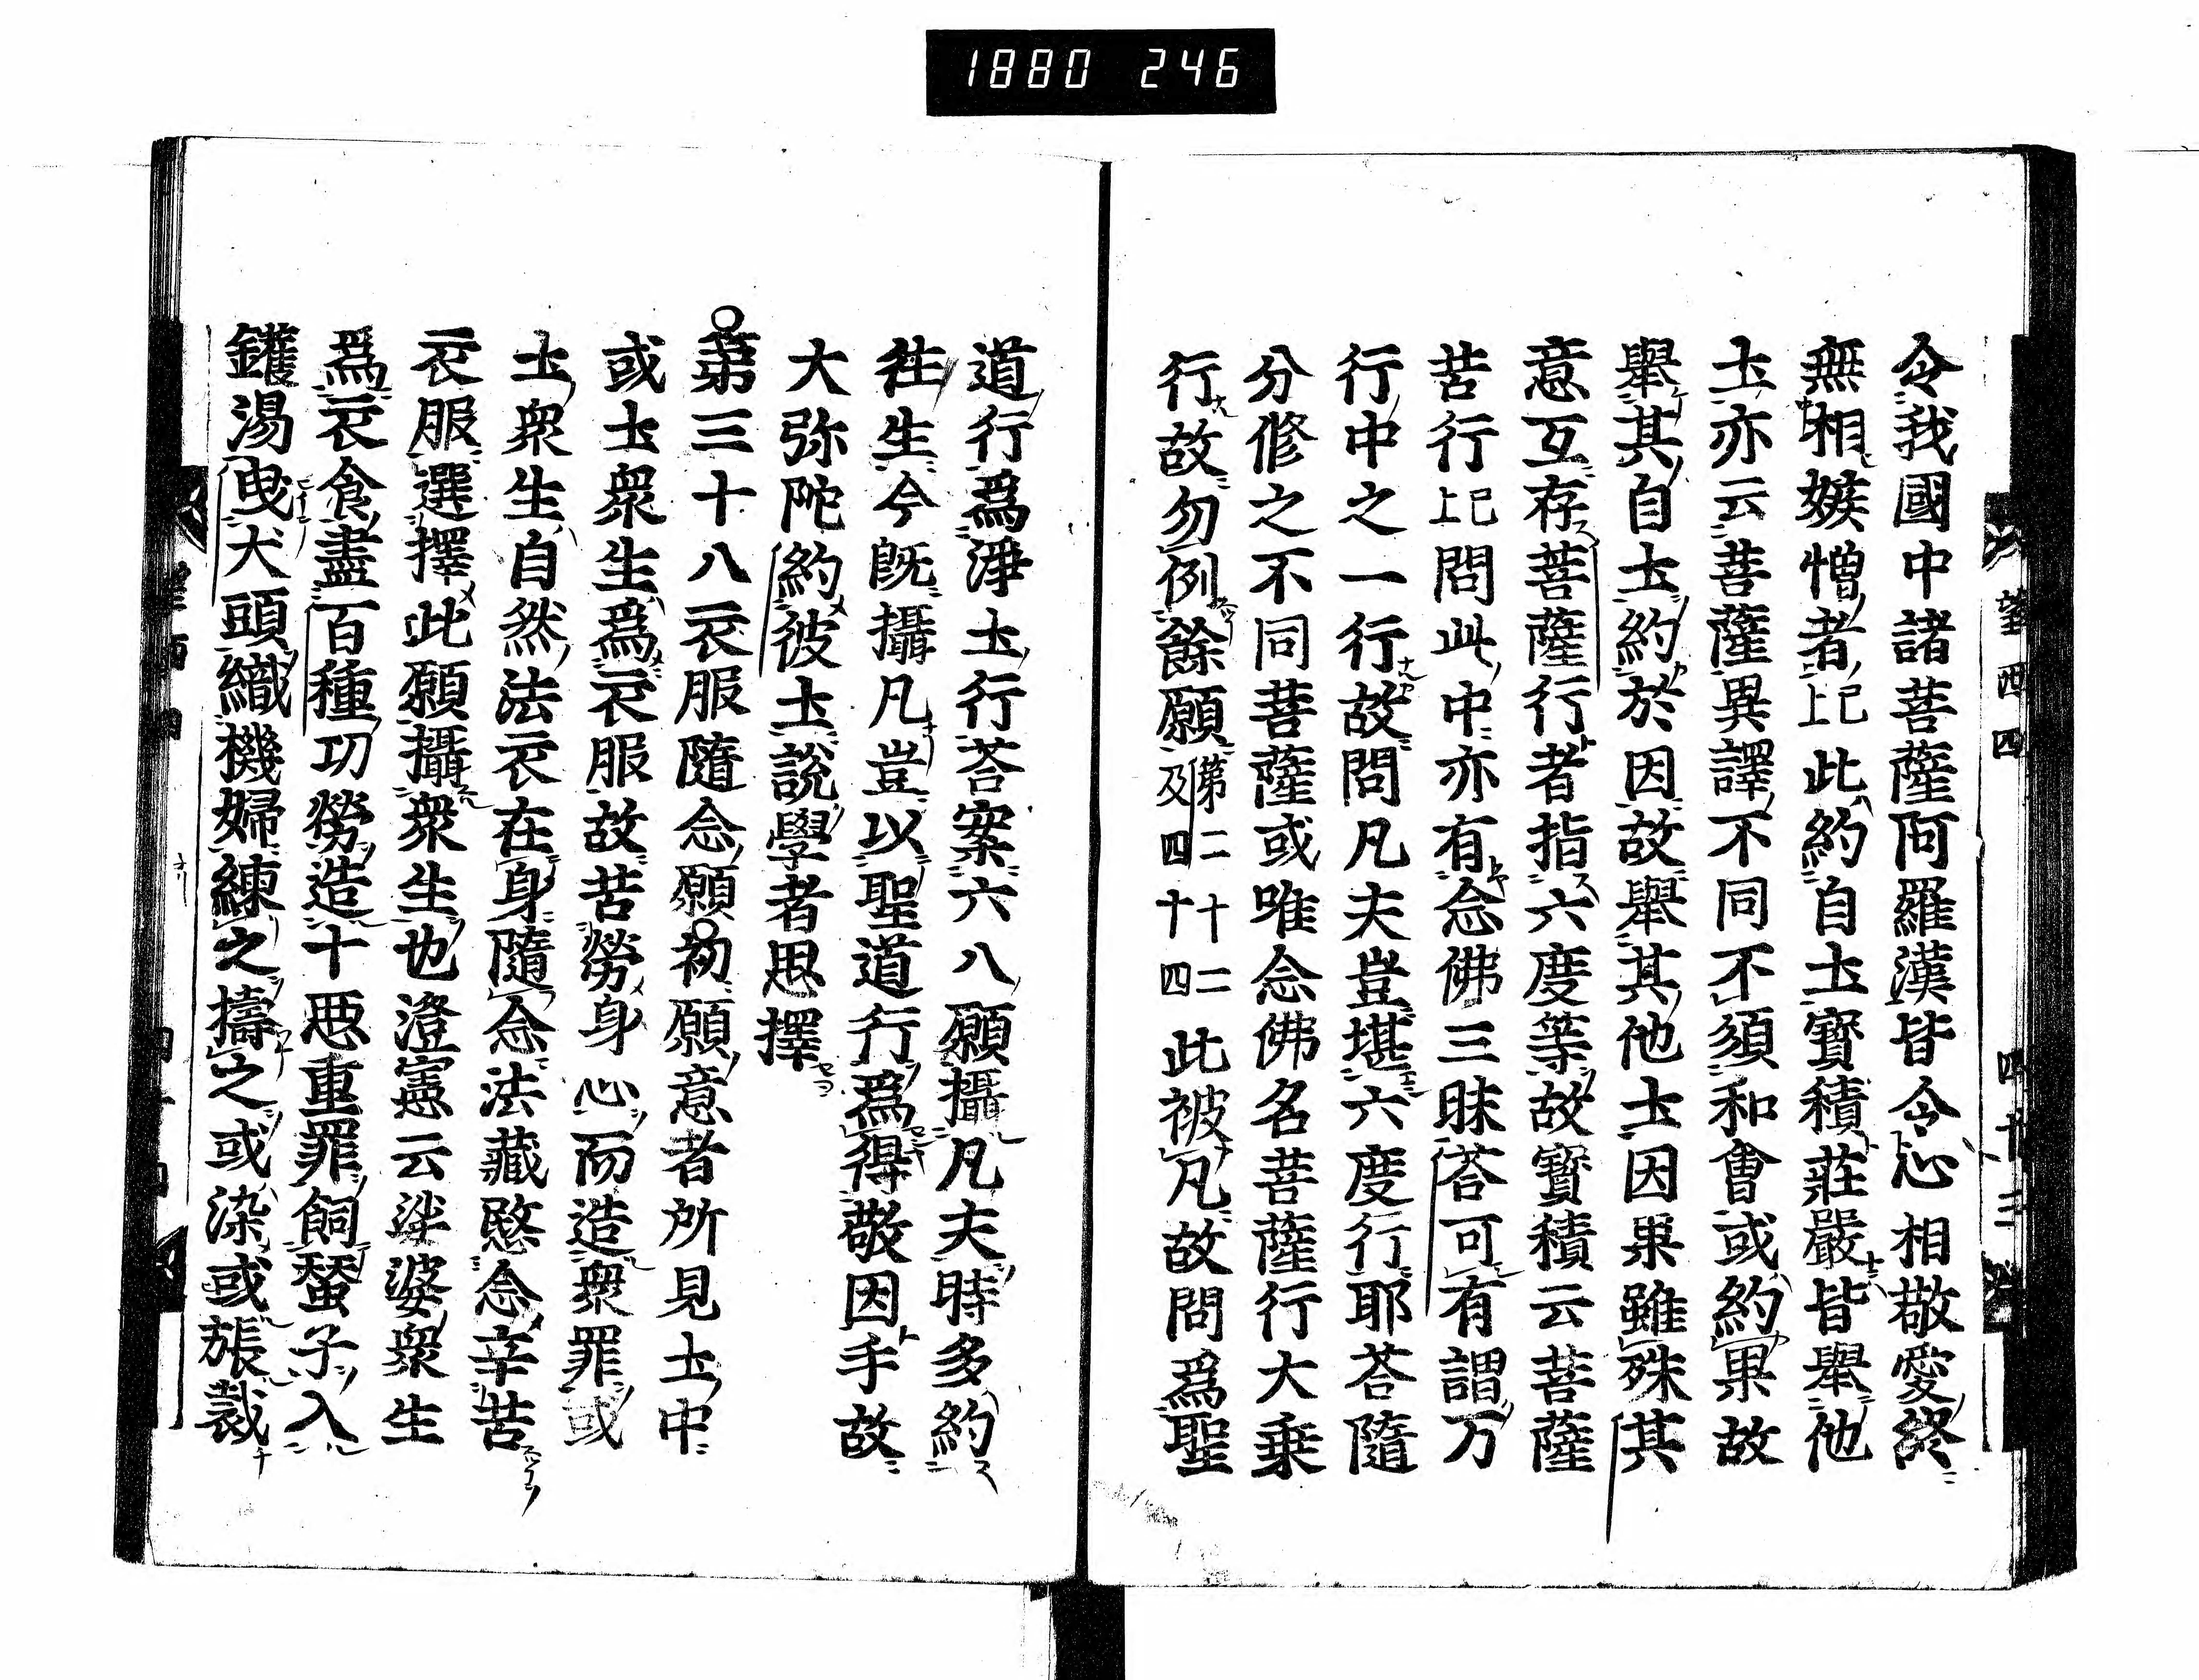 1880 246
令我國中諸菩薩阿羅漢皆令心相敬愛終
無相嫉憎者已上此約自土寳積莊嚴皆舉他
土亦云菩薩異譯不同不須和會或約果故
舉其自土約於因故舉其他土因果雖殊其
意互存菩薩行者指六度等故寳積云菩薩
苦行已上問此中亦有念佛三昧荅可有謂万
行中之一行故問凡夫豈堪六度行耶荅隨
分修之不同菩薩或唯念佛名菩薩行大乗
行故勿例餘願第二十二及四十四此被凡故問爲聖
道行爲淨土行荅案六八願攝凡夫時多約
往生今既攝凡豈以聖道行爲得敬因乎故
大弥陀約彼土說學者思擇
第三十八衣服隨念願初願意者所見土中
或土衆生爲衣服故苦勞身心而造衆罪或
土衆生自然法衣在身隨念法藏愍念辛苦
衣服選擇此願攝衆生也澄憲云娑婆衆生
爲衣食盡百種功勞造十惡重罪飼蚕子入
鑊湯曳犬頭織機婦練之擣之或染或張裁
望西四
四十三